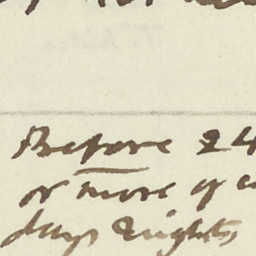 Before 24
or more of
days & nights